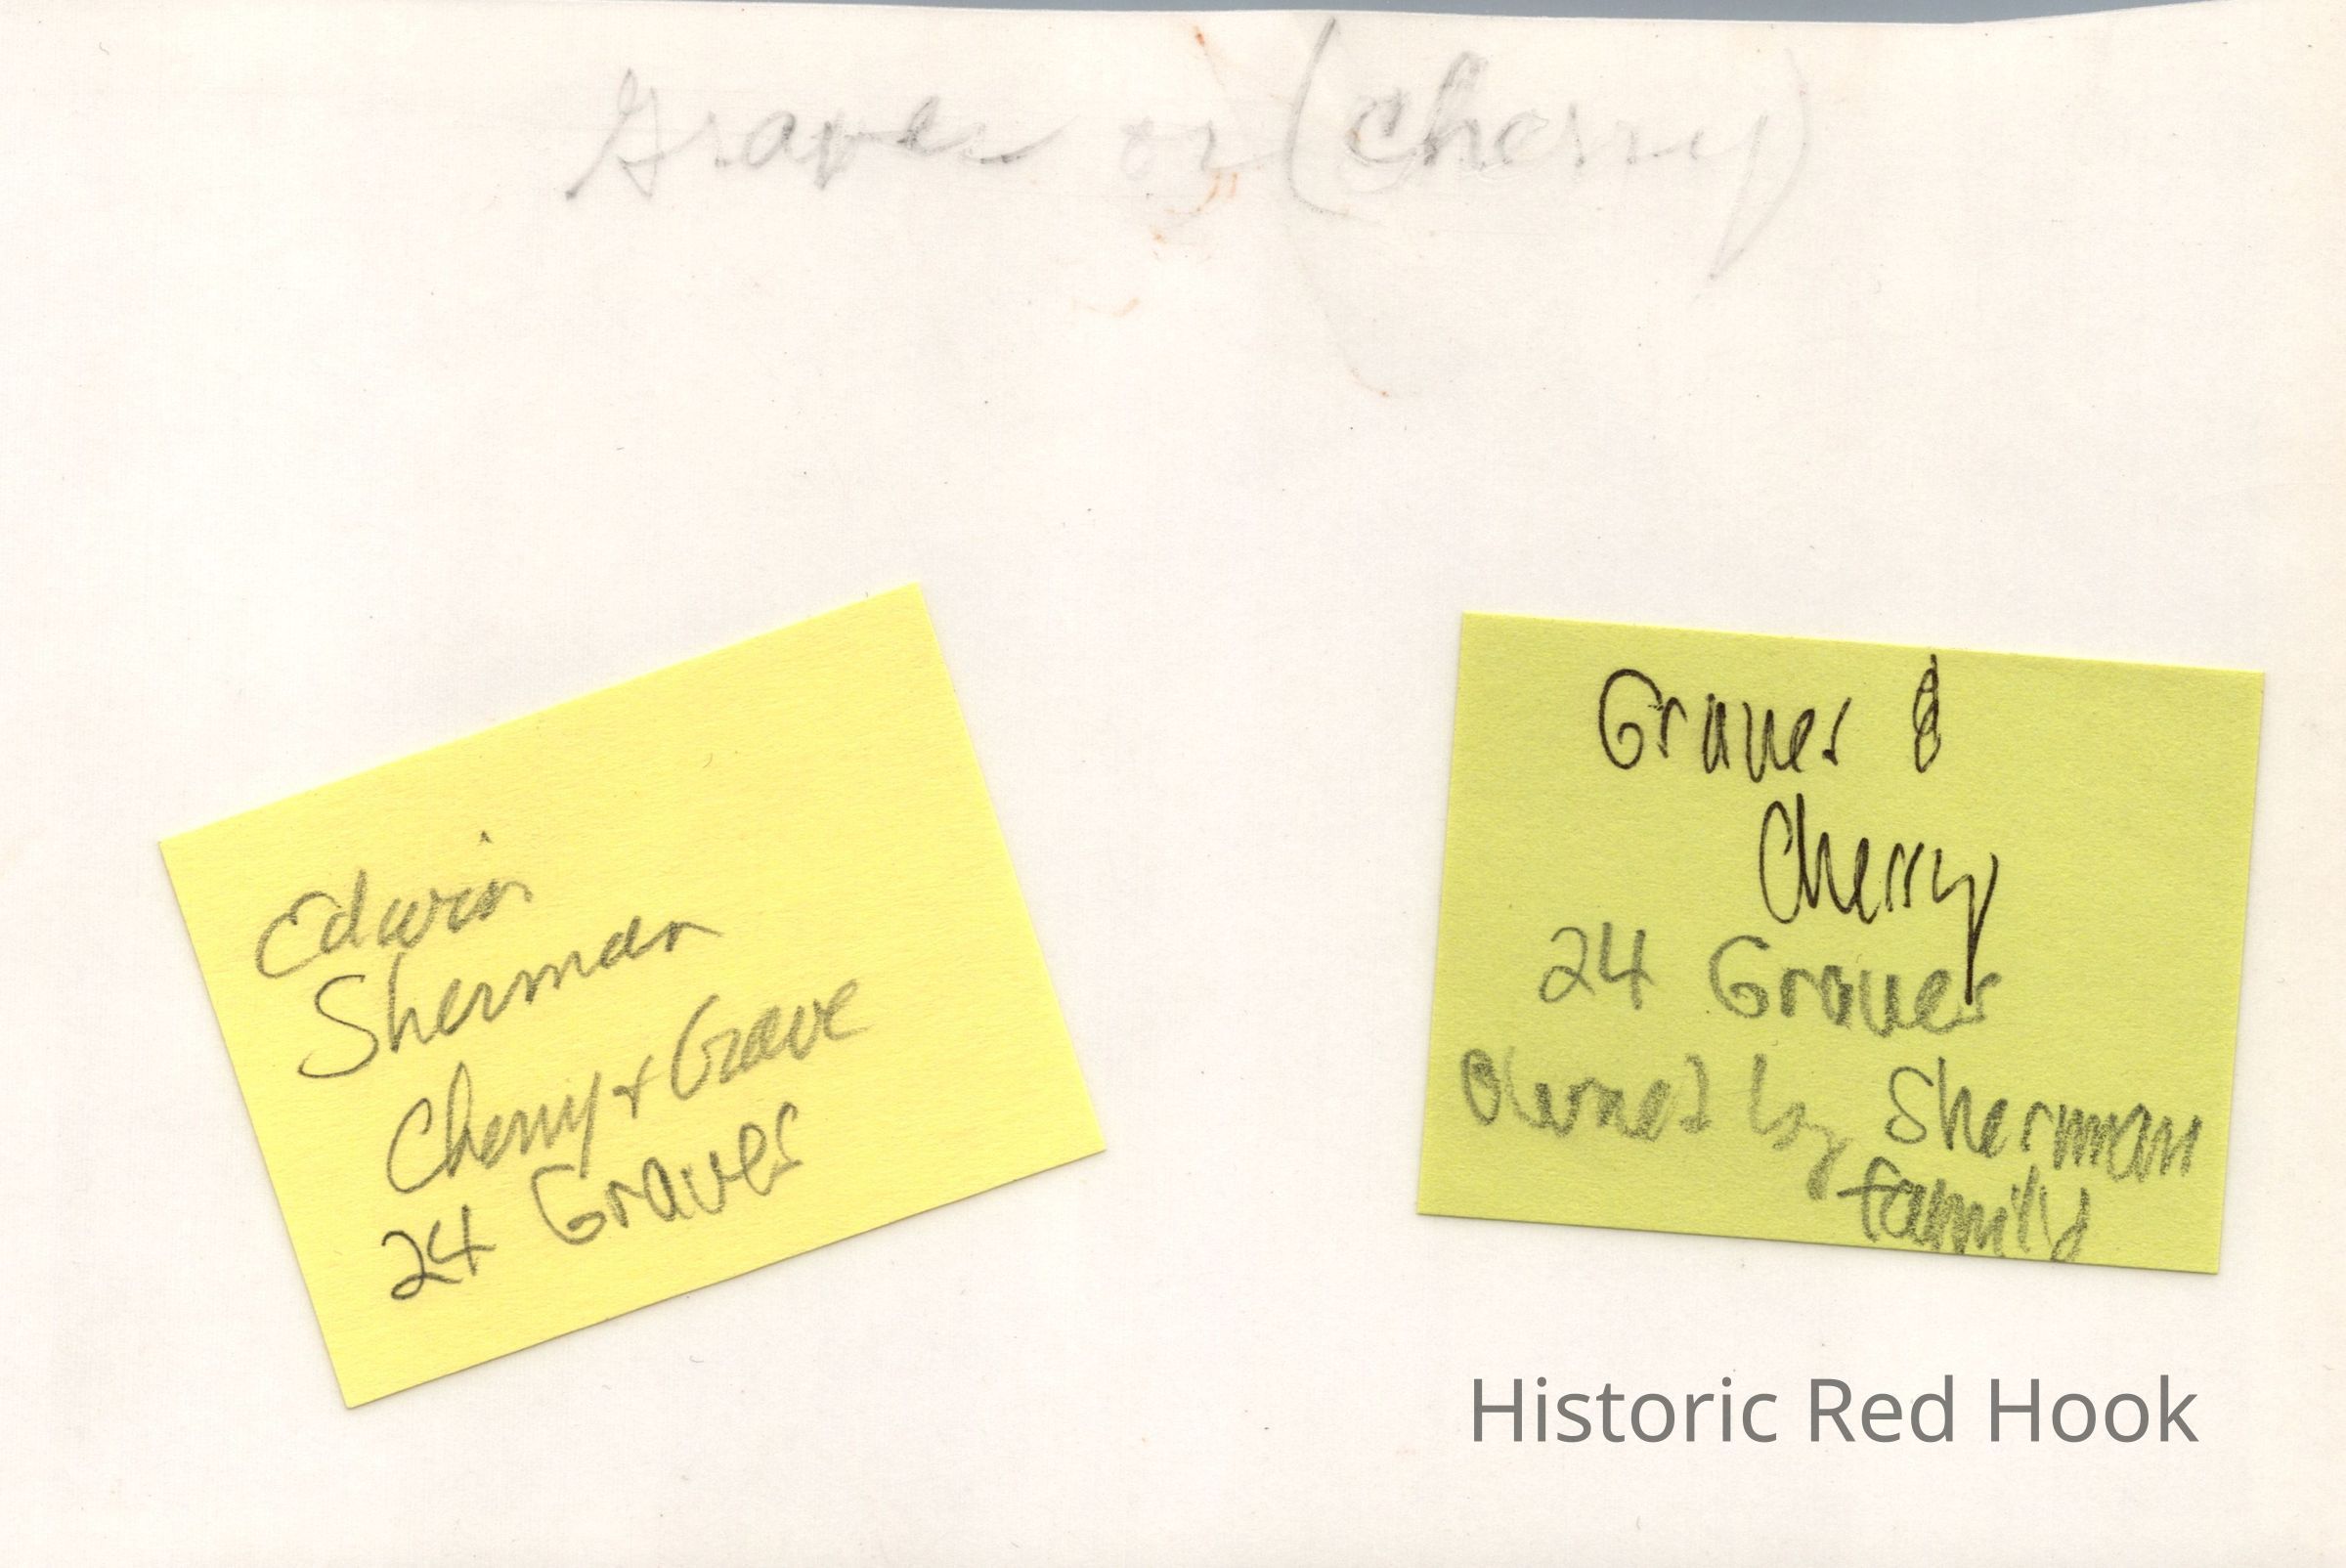 Graves or (Cherry)
Edwin
Sherman
Cherry + Grave
24 Graves
Graves &
Cherry
24 Graves
owned by Sherman
family
Historic Red Hook